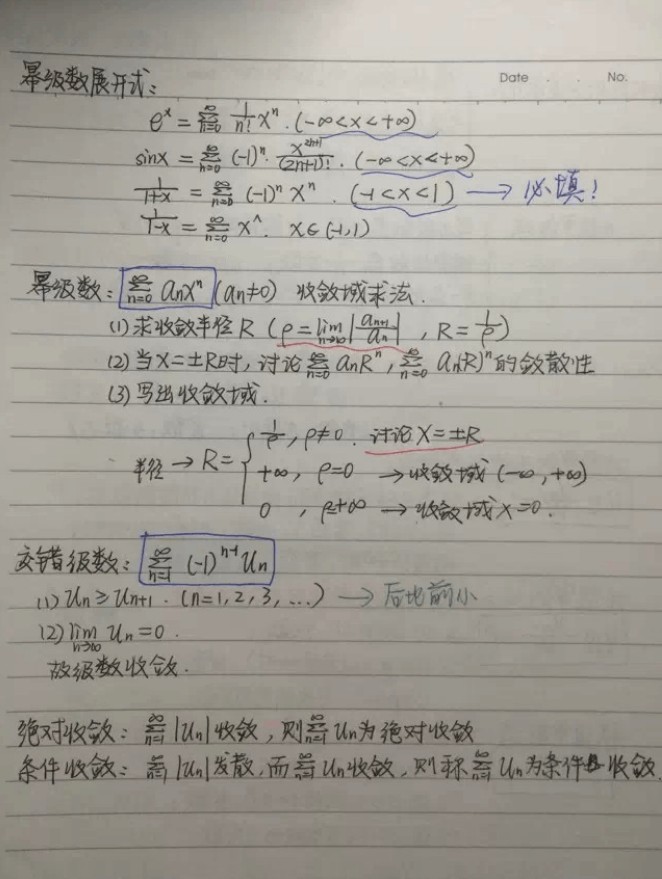 Date . . No.
幂级数展开式：
e^x = ∑_{n=0}^{∞} 1/n! x^n . (-∞<x<+∞)
sinx = ∑_{n=0}^{∞} (-1)^n · x^{2n+1}/(2n+1)! . (-∞<x<+∞)
1/(1+x) = ∑_{n=0}^{∞} (-1)^n x^n . (-1<x<1) → 必填！
1/(1-x) = ∑_{n=0}^{∞} x^n . x∈(-1,1)
幂级数：∑_{n=0}^{∞} a_n x^n (a_n≠0) 收敛域求法.
(1) 求收敛半径R (ρ=lim_{n→∞}|a_{n+1}/a_n| , R=1/ρ)
(2) 当x=±R时，讨论∑_{n=0}^{∞} a_n R^n , ∑_{n=0}^{∞} a_n(R)^n的敛散性
(3) 写出收敛域.
1/ρ , ρ≠0. 讨论x=±R
半径 → R={ +∞, ρ=0 → 收敛域 (-∞, +∞)
0 , ρ=+∞ → 收敛域x=0.
交错级数：∑_{n=1}^{∞} (-1)^{n-1} U_n
(1) U_n ≥ U_{n+1} . (n=1,2,3,...) → 后比前小
(2) lim_{n→∞} U_n=0.
故级数收敛.
绝对收敛：∑_{n=1}^{∞} |U_n|收敛，则∑_{n=1}^{∞} U_n为绝对收敛
条件收敛：∑_{n=1}^{∞} |U_n|发散,而∑_{n=1}^{∞} U_n收敛，则称∑_{n=1}^{∞} U_n为条件收敛.